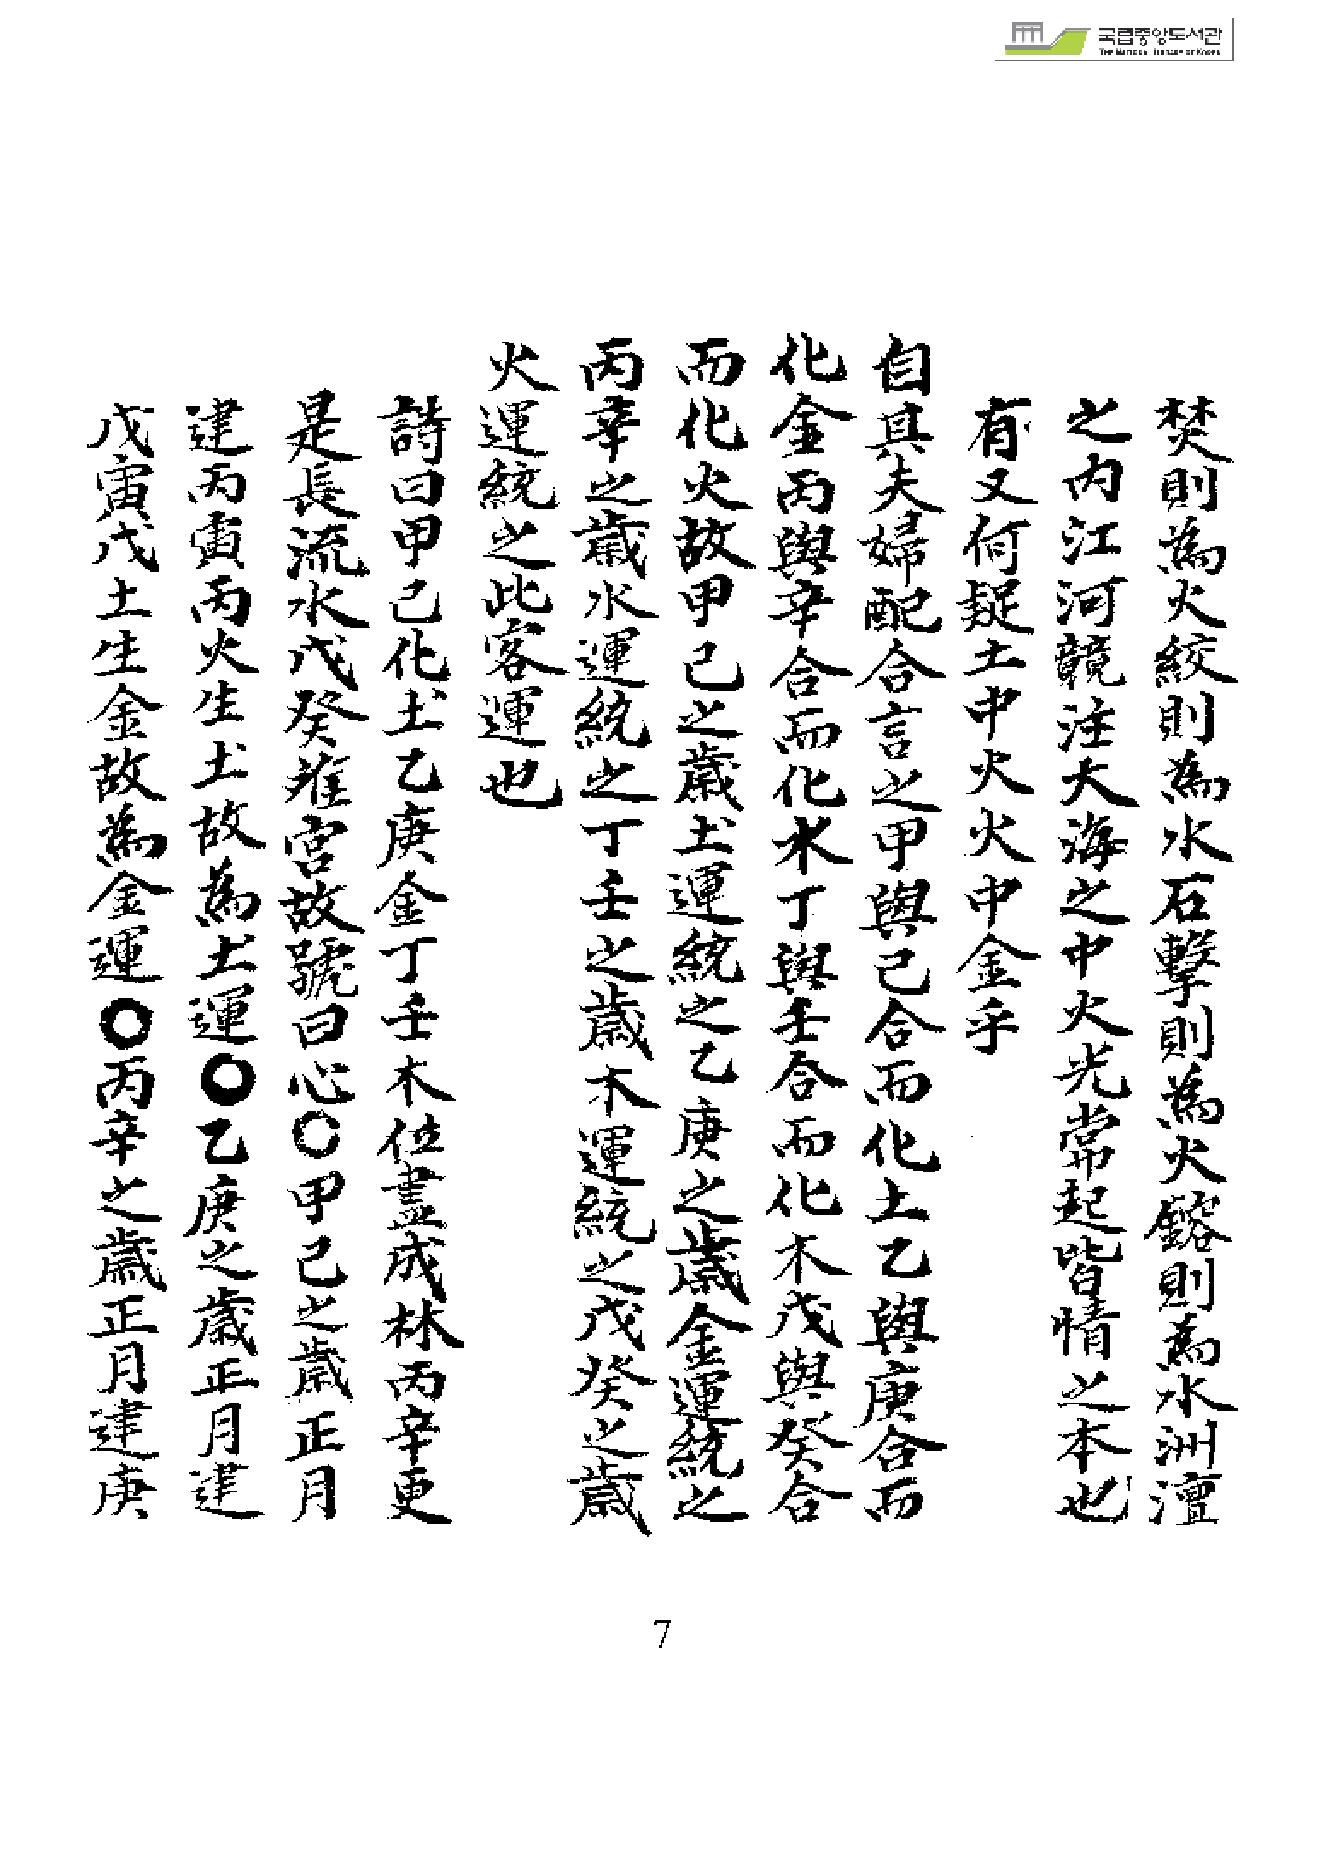 국립중앙도서관
THE NATIONAL LIBRARY OF KOREA
焚則為火絞則為水石擊則為火鎔則為水洲澶
之内江河競注大海之中火光常起皆情之本也
有又何疑土中火火中金乎
自其夫婦配合言之甲與己合而化土乙與庚合而
化金丙與辛合而化水丁與壬合而化木戊與癸合
而化火故甲己之歲土運統之乙庚之歲金運統之
丙辛之歲水運統之丁壬之歲木運統之戊癸之歲
火運統之此客運也
詩曰甲己化土乙庚金丁壬木位盡成林丙辛更
是長流水戊癸離宮故號曰心〇甲己之歲正月
建丙寅丙火生土故為土運〇乙庚之歲正月建
戊寅戊土生金故為金運〇丙辛之歲正月建庚
7